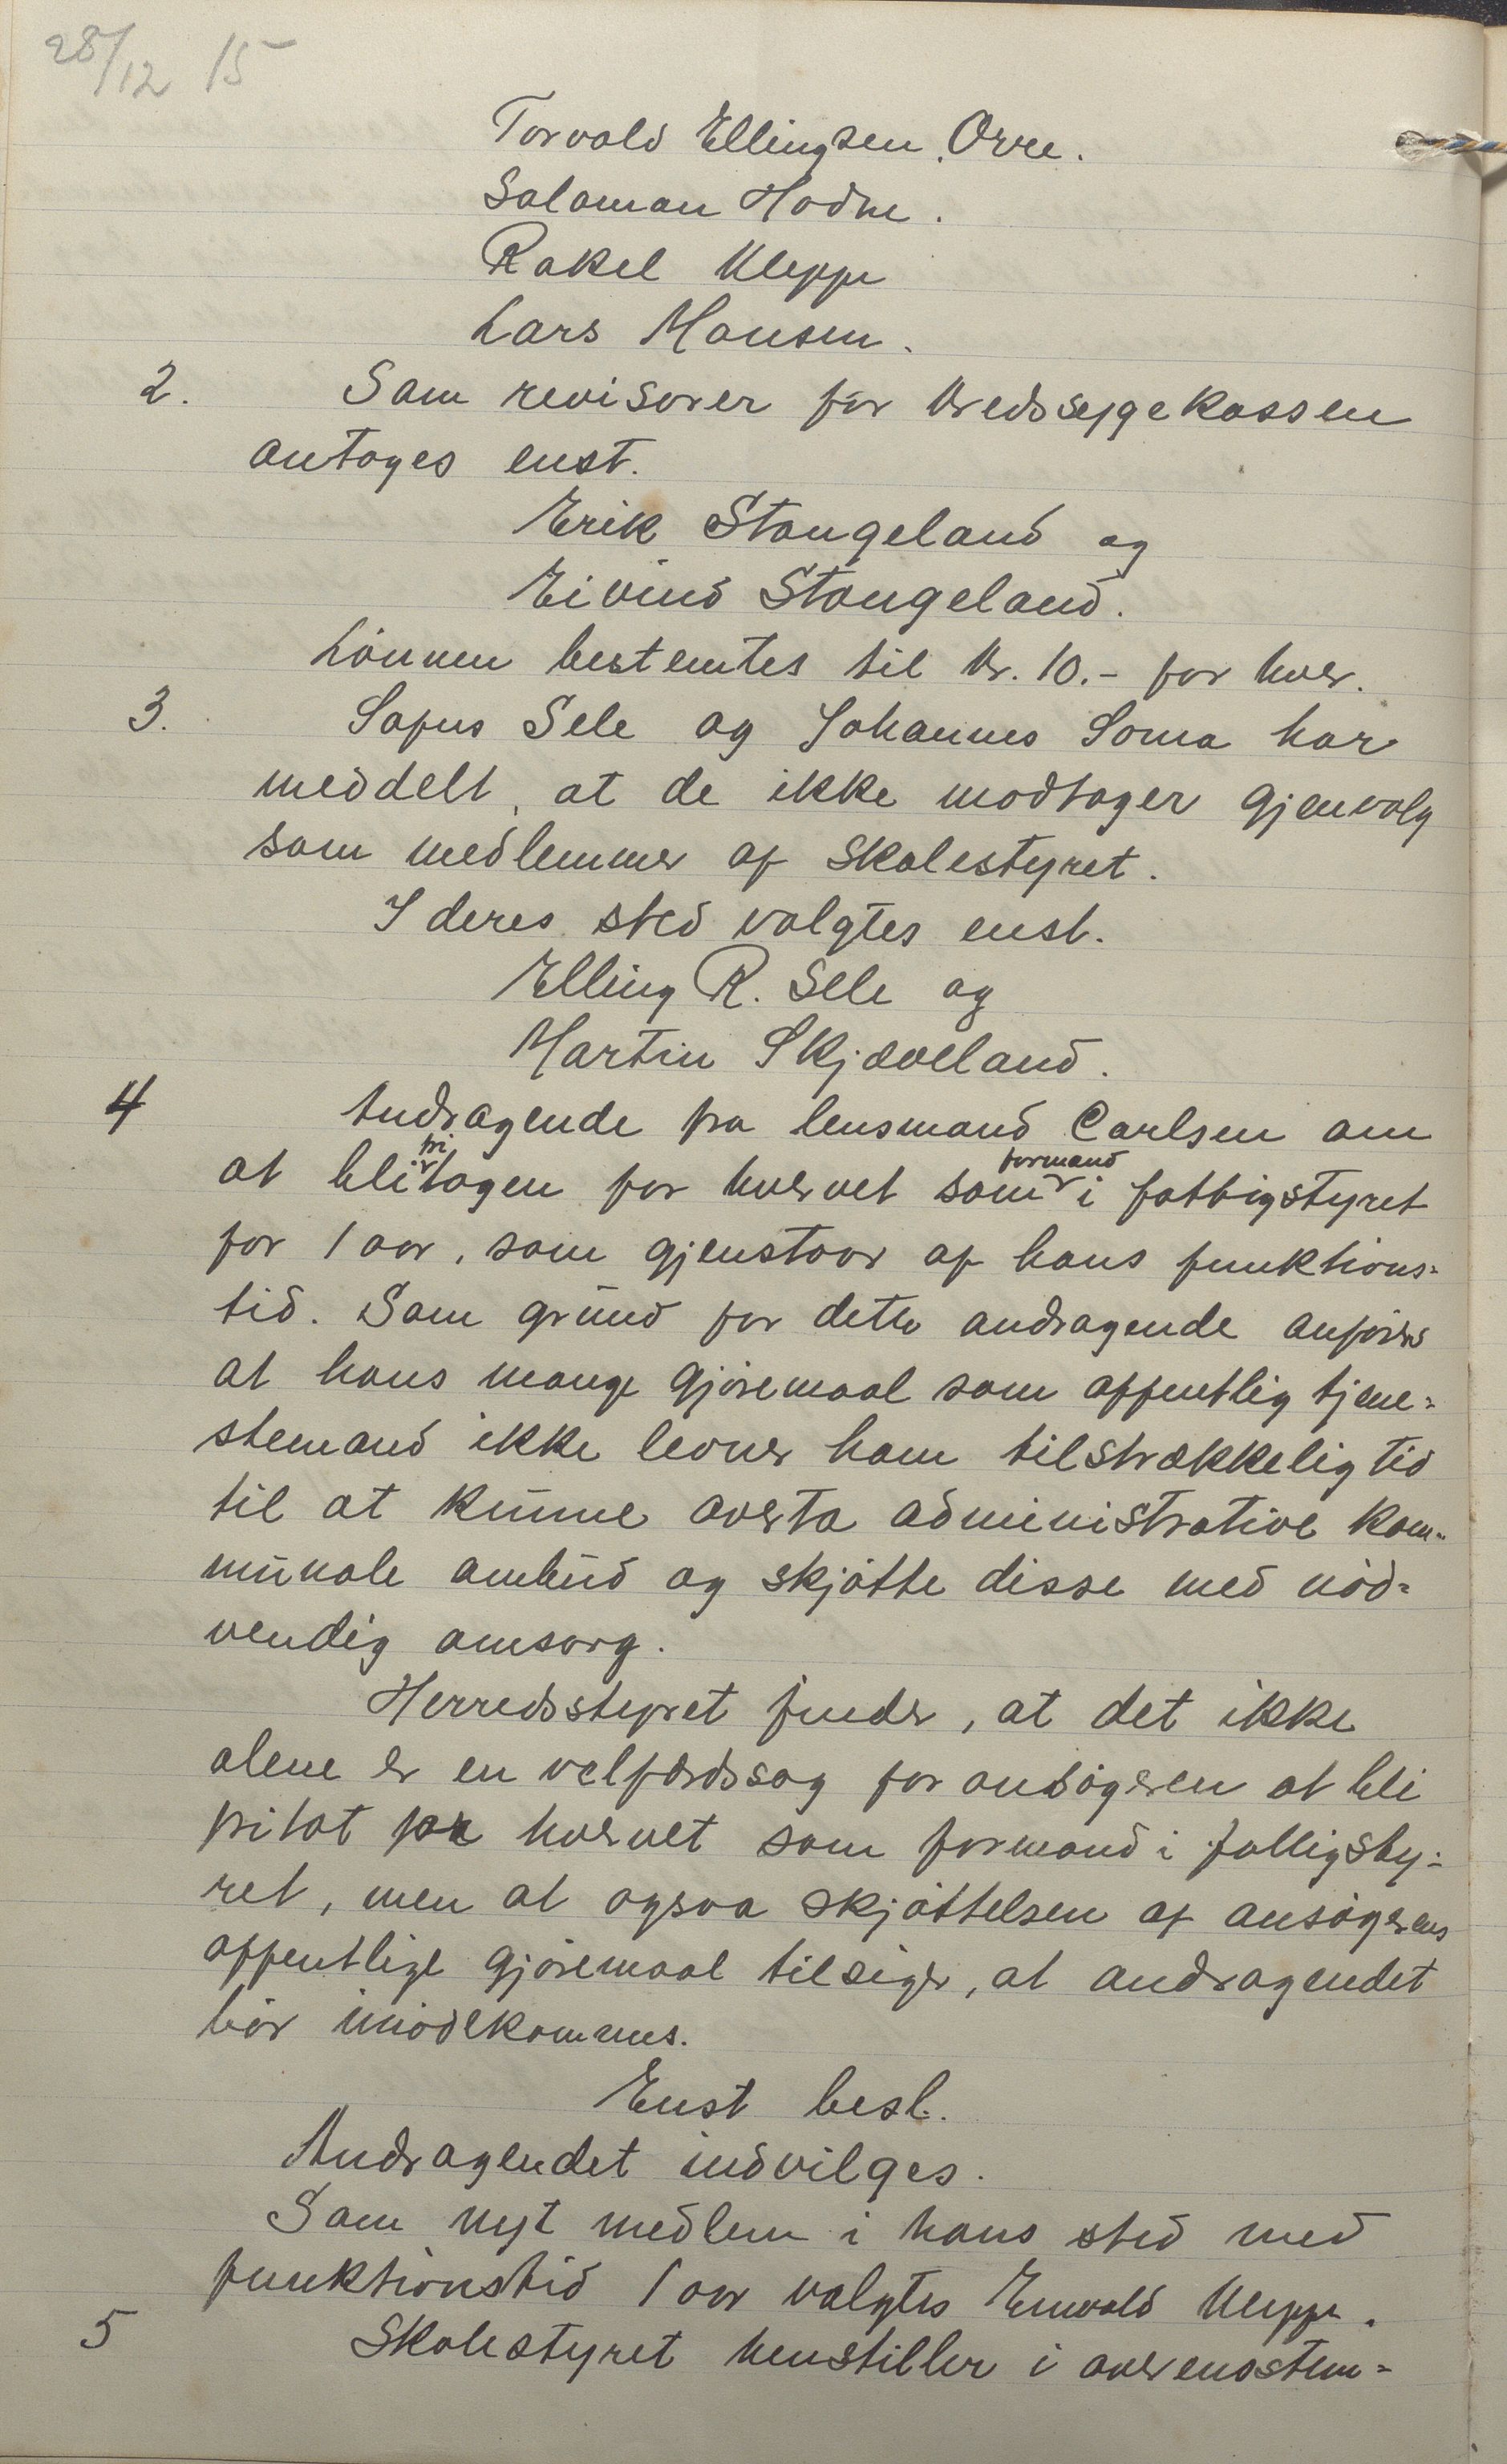 28/12 15
Torvald Ellingsen Orre.
Salomon Hodne.
Rakel Kleppe
Lars Monsen.
2. Som revisorer for kredssygekassen
antages enst.
Erik Stangeland og
Eivind Stangeland.
Lönnen bestemtes til kr. 10.- for hver.
3. Sofus Sele og Johannes Soma har
meddelt, at de ikke modtager gjenvalg
som medlemmer af skolestyret.
I deres sted valgtes enst.
Elling R. Sele og
Martin Skjæveland.
4 Andragende fra lensmand Carlsen om
at bli fritagen for hvervet som formand i fattigstyret
for 1 aar, som gjenstaar af hans funktions-
tid. Som grund for dette andragende anföres
at hans mange gjöremaal som offentlig tjene-
stemand ikke levner ham tilstrækkelig tid
til at kunne overta administrative kom-
munale ombud og skjötte disse med nöd-
vendig omsorg.
Herredsstyret finder, at det ikke
alene er en velfærdssag for ansögeren at bli
fritat for hvervet som formand i fattigsty-
ret, men at ogsaa skjöttelsen af ansögerens
offentlige gjöremaal tilsiger, at andragendet
bör imödekommes.
Enst besl.
Andragendet indvilges.
Som nyt medlem i hans sted med
funktionstid 1 aar valgtes Enevald Kleppe.
5 Skolestyret henstiller i overensstem-